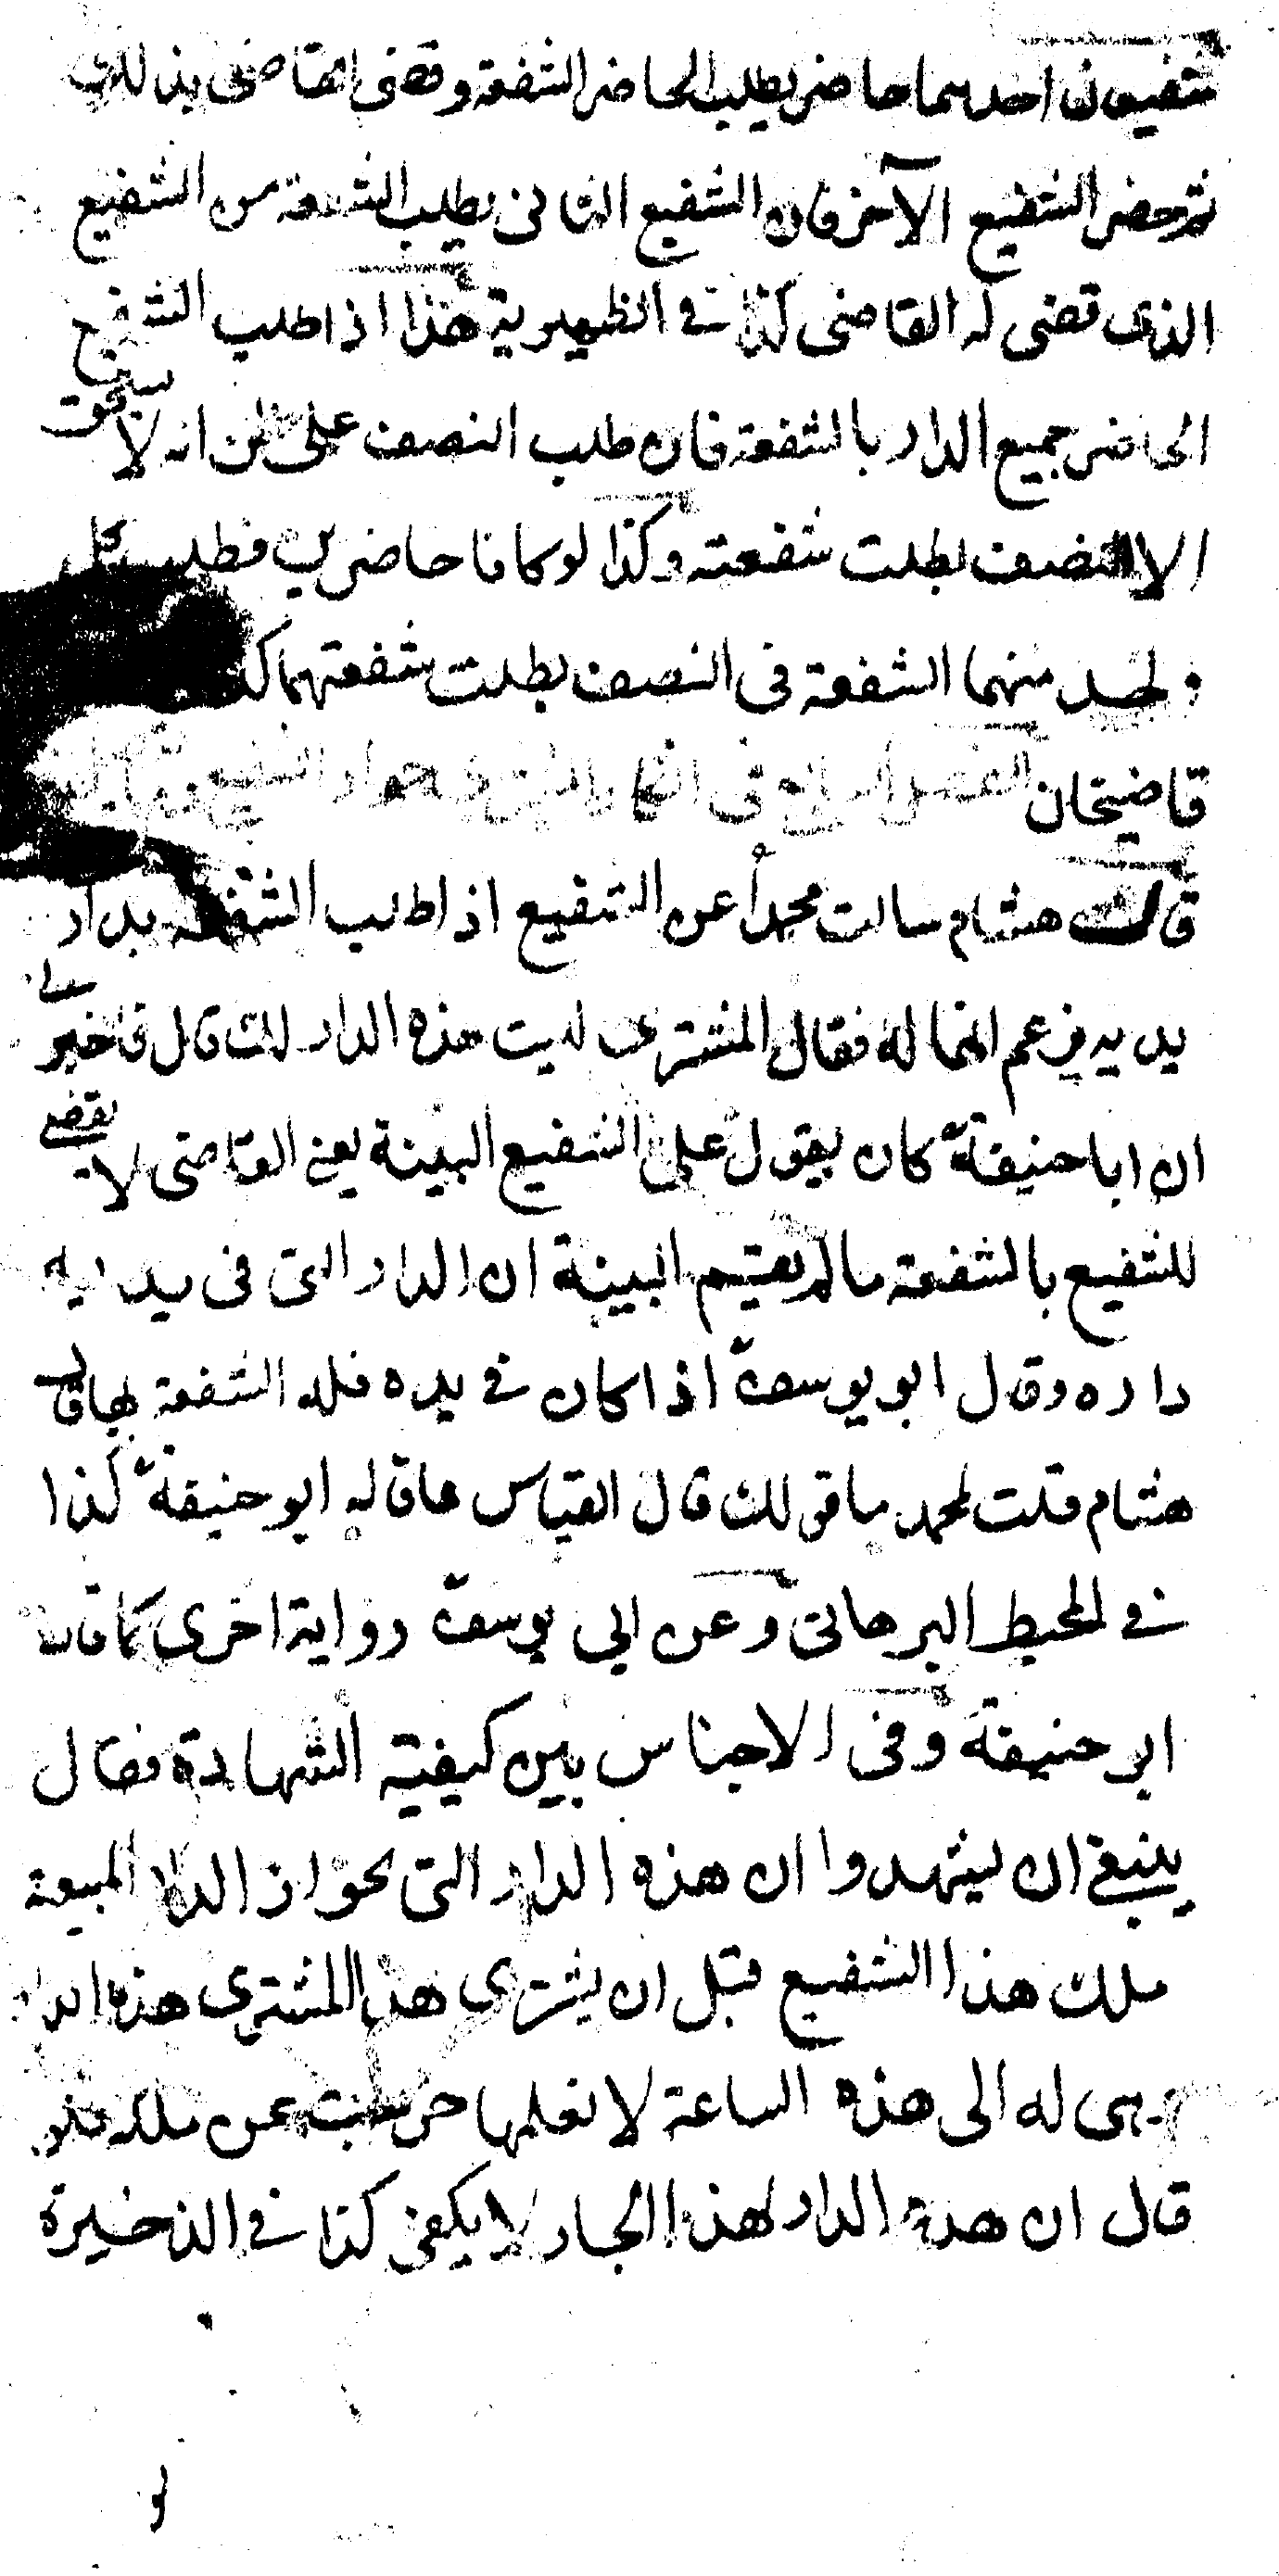 شفيعان احدهما حاضر يطلب الحاضر الشفعة وقضى القاضى بذلك
ثم حضر الشفيع الآخر فان الشفيع الثانى يطلب الشفعة من الشفيع
الذى قضى له القاضى كذا في الظهيرية هذا اذا طلب الشفيع
الحاضر جميع الدار بالشفعة فان طلب النصف على ظن انه لا يستحق
الا النصف بطلت شفعته وكذا لو كانا حاضرين فطلب كل
واحد منهما الشفعة فى النصف بطلت شفعتهما
قاضيخان الفصل الرابع فى انكار المشترى جوار الشفيع
قال هشام سالت محمدا عن الشفيع اذا طلب الشفعة بدار
يديه يزعم انها له فقال المشترى ليت هذه الدار لك قال فاخبر
ان ابا حنيفة كان يقول على الشفيع البينة يعني القاضى لا يقضي
للشفيع بالشفعة مالم يقيم البينة ان الدار التى فى يديه
داره وقال ابو يوسف اذا كان في يده فله الشفعة بها قال
هشام قلت لمحمد ما قولك قال القياس ما قاله ابو حنيفة كذا
في المحيط البرهانى وعن ابي يوسف رواية اخرى كما قال
ابو حنيفة وفى الاجناس بين كيفية الشهادة فقال
ينبغي ان يشهدوا ان هذه الدار التى بجوار الدار المبيعة
ملك هذا الشفيع قبل ان يشترى هذا المشترى هذه الدار
وهى له الى هذه الساعة لا نعلمها خرجت عن ملكه فلو
قال ان هذه الدار لهذا الجار لا يكفى كذا في الذخيرة
و